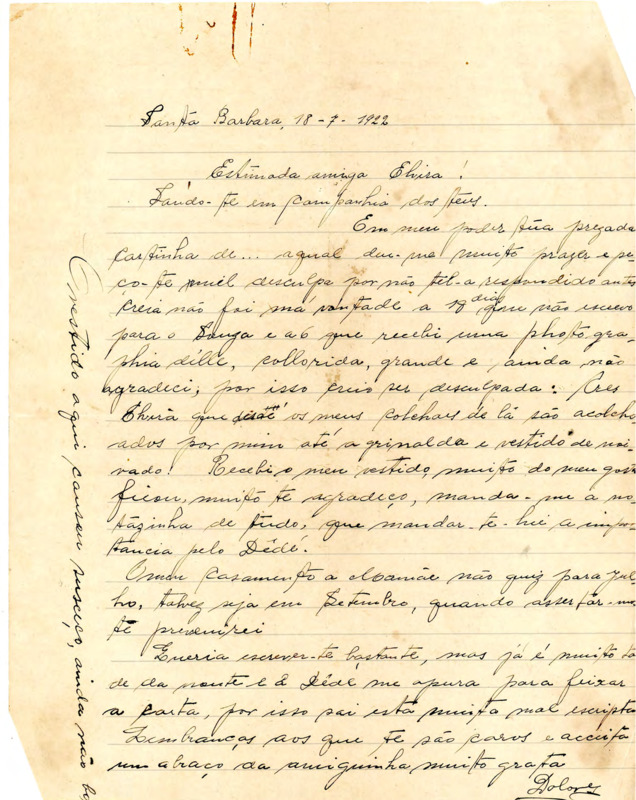 Santa Barbara, 18-7-1922
Estimada amiga Elvira!
Saúdo-te em companhia dos teus.
Em meu poder tua prezada
cartinha de... aqual deu-me muito prazer e pe-
ço-te mil desculpa por não tel-a respondido antes
creia não foi má vontade a 19 dias que não escrevo
para o e a 6 que recebi uma photogra-
phia dille, collorida, grande e ainda não
agradeci, por isso creio ser desculpada: Cres
Elvira que até os meus colchões de lã são acolcho-
ados por mim até a grinalda e vestido de noi-
vado! Recebi o meu vestido, muito do meu gosto
ficou, muito te agradeço, manda-me a no-
tazinha de tudo, que mandar-te-hei a impor-
tância pelo Dédé.
O meu casamento a Mamãe não quiz para Ju-
lho, talvez seja em Setembro, quando assertar-mos
te prevenirei
Queria escrever-te bastante, mas já é muito tar-
de da noute e o Dédé me apura para feixar
a carta, por isso sai esta muito mal escripta
Lembranças aos que te são caros e acceita
um abraço da amiguinha muito grata
Dolores
O vestido aqui causou susceço, ainda não